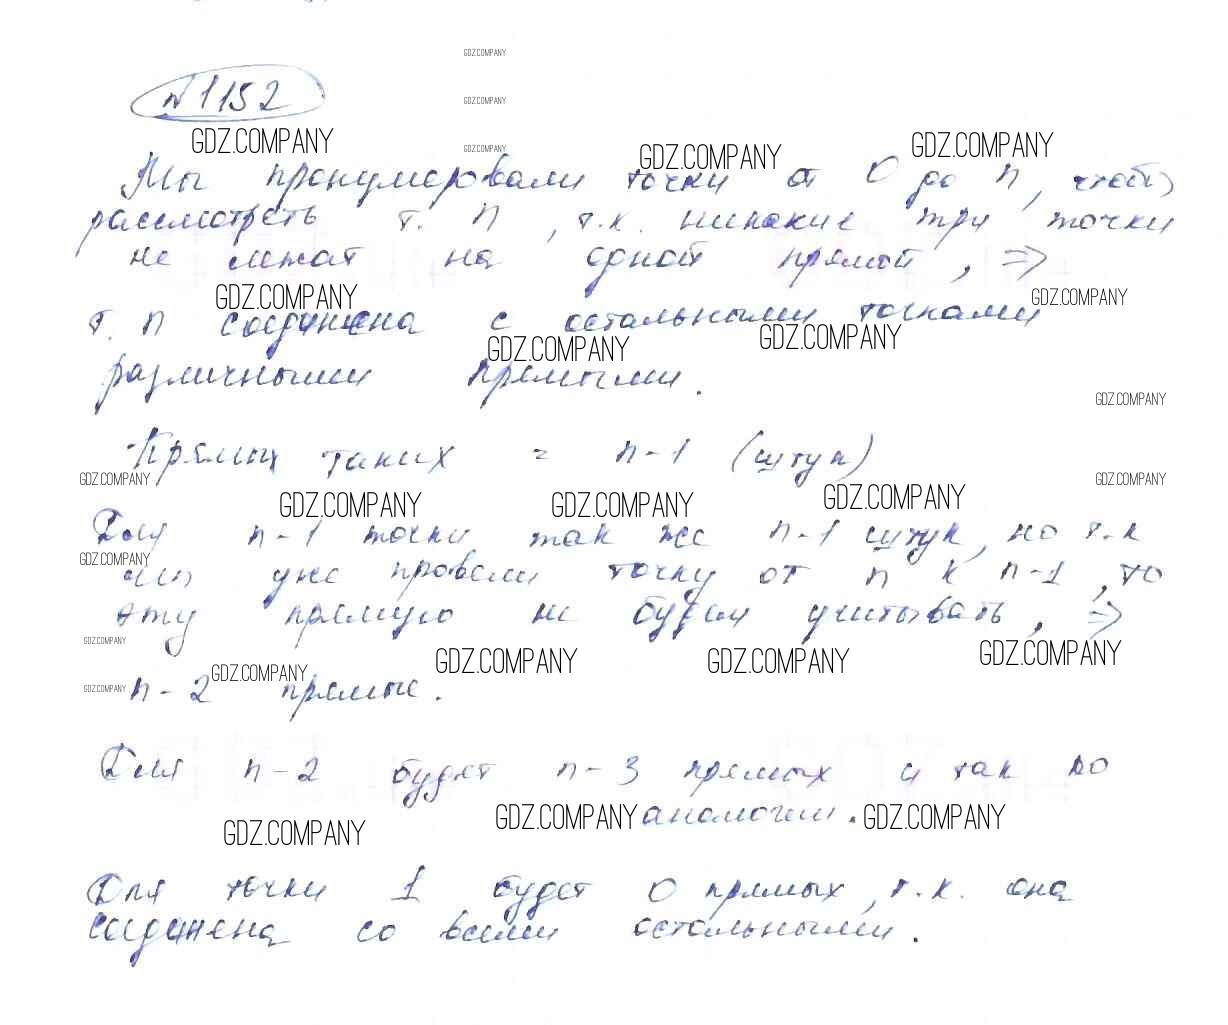 GDZ.COMPANY
GDZ.COMPANY
№1152
GDZ.COMPANY GDZ.COMPANY GDZ.COMPANY GDZ.COMPANY
Мы пронумеровали точки от 0 до n, чтобы
рассмотреть т. n, т.к. никакие три точки
не лежат на одной прямой, =>
GDZ.COMPANY GDZ.COMPANY
т. n соединена с остальными точками
GDZ.COMPANY GDZ.COMPANY
различными прямыми.
GDZ.COMPANY
Прямых таких = n-1 (штук)
GDZ.COMPANY GDZ.COMPANY
GDZ.COMPANY GDZ.COMPANY GDZ.COMPANY
Для n-1 точки так же n-1 штук, но т.к
GDZ.COMPANY
мы уже провели точку от n к n-1, то
эту прямую не будем учитывать, =>
GDZ.COMPANY
GDZ.COMPANY GDZ.COMPANY GDZ.COMPANY
GDZ.COMPANY GDZ.COMPANY
n-2 прямые.
Для n-2 будет n-3 прямых и так по
GDZ.COMPANY аналогии. GDZ.COMPANY
GDZ.COMPANY
Для точки 1 будет 0 прямых, т.к. она
соединена со всеми остальными.